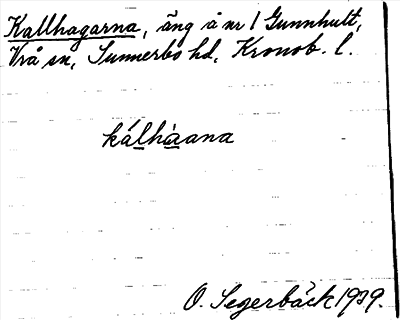 Kallhagarna, äng å nr 1 Gunnhult,
Vrå sn, Sunnerbo hd, Kronob. l.
kálhàana
O. Segerbäck 1939.